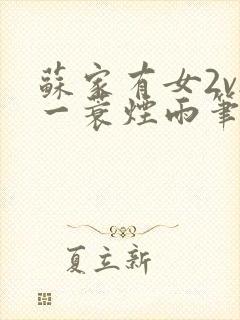 蘇家有女2v
一蓑煙雨筆
夏立新